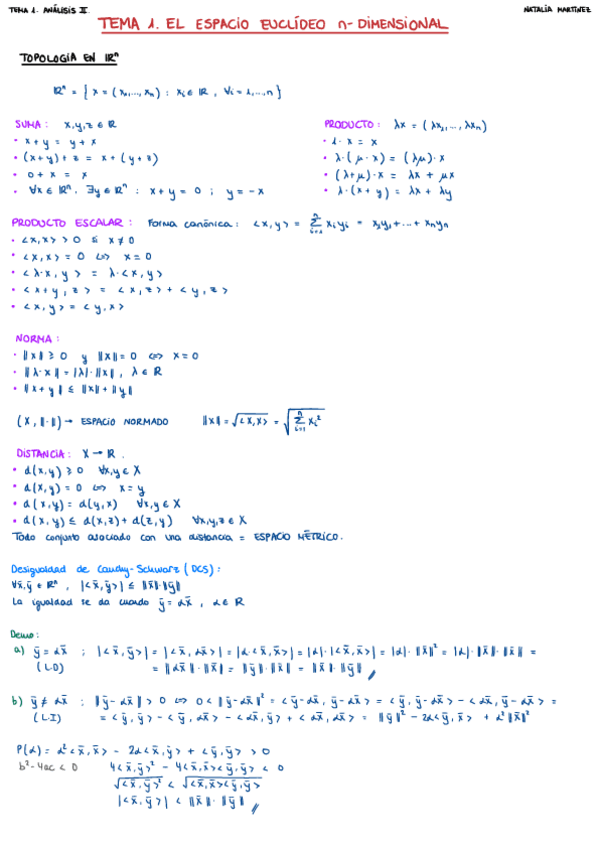 TEMA 1. ANÁLISIS II.
NATALIA MARTÍNEZ
TEMA 1. EL ESPACIO EUCLÍDEO n-DIMENSIONAL
TOPOLOGÍA EN ℝⁿ
ℝⁿ = { x = (x₁,...,xₙ) : xᵢ ∈ ℝ , ∀i = 1,...,n }
SUMA: x,y,z ∈ ℝ
• x + y = y + x
• (x+y) + z = x + (y+z)
• 0 + x = x
• ∀x ∈ ℝⁿ. ∃y ∈ ℝⁿ : x + y = 0 ; y = -x
PRODUCTO: λx = (λx₁,...,λxₙ)
• 1 · x = x
• λ·(μ·x) = (λμ)·x
• (λ+μ)·x = λx + μx
• λ·(x+y) = λx + λy
PRODUCTO ESCALAR: Forma canónica: <x,y> = Σⁿᵢ₌₁ xᵢyᵢ = x₁y₁ + ... + xₙyₙ
• <x,x> > 0 si x ≠ 0
• <x,x> = 0 <=> x = 0
• <λ·x, y> = λ·<x,y>
• <x+y, z> = <x,z> + <y,z>
• <x,y> = <y,x>
NORMA:
• ‖x‖ ≥ 0 y ‖x‖ = 0 <=> x = 0
• ‖λ·x‖ = |λ|·‖x‖, λ ∈ ℝ
• ‖x+y‖ ≤ ‖x‖ + ‖y‖
(X, ‖·‖) → ESPACIO NORMADO ‖x‖ = √<x,x> = √(Σⁿᵢ₌₁ xᵢ²)
DISTANCIA: X → ℝ.
• d(x,y) ≥ 0 ∀x,y ∈ X
• d(x,y) = 0 <=> x = y
• d(x,y) = d(y,x) ∀x,y ∈ X
• d(x,y) ≤ d(x,z) + d(z,y) ∀x,y,z ∈ X
Todo conjunto asociado con una distancia = ESPACIO MÉTRICO.
Desigualdad de Cauchy-Schwarz (DCS):
∀x̄,ȳ ∈ ℝⁿ, |<x̄,ȳ>| ≤ ‖x̄‖·‖ȳ‖
La igualdad se da cuando ȳ = αx̄ , α ∈ ℝ
Demo:
a) ȳ = αx̄ ; |<x̄,ȳ>| = |<x̄,αx̄>| = |α·<x̄,x̄>| = |α|·|<x̄,x̄>| = |α|·‖x̄‖² = |α|·‖x̄‖·‖x̄‖ =
(L.D) = ‖αx̄‖·‖x̄‖ = ‖ȳ‖·‖x̄‖ = ‖x̄‖·‖ȳ‖ //
b) ȳ ≠ αx̄ ; ‖ȳ-αx̄‖ > 0 <=> 0 < ‖ȳ-αx̄‖² = <ȳ-αx̄, ȳ-αx̄> = <ȳ, ȳ-αx̄> - <αx̄, ȳ-αx̄> =
(L.I) = <ȳ,ȳ> - <ȳ,αx̄> - <αx̄,ȳ> + <αx̄,αx̄> = ‖ȳ‖² - 2α<ȳ,x̄> + α²‖x̄‖²
P(α) = α²<x̄,x̄> - 2α<x̄,ȳ> + <ȳ,ȳ> > 0
b²-4ac < 0 4<x̄,ȳ>² - 4<x̄,x̄><ȳ,ȳ> < 0
√<x̄,ȳ>² < √<x̄,x̄><ȳ,ȳ>
|<x̄,ȳ>| < ‖x̄‖·‖ȳ‖ //